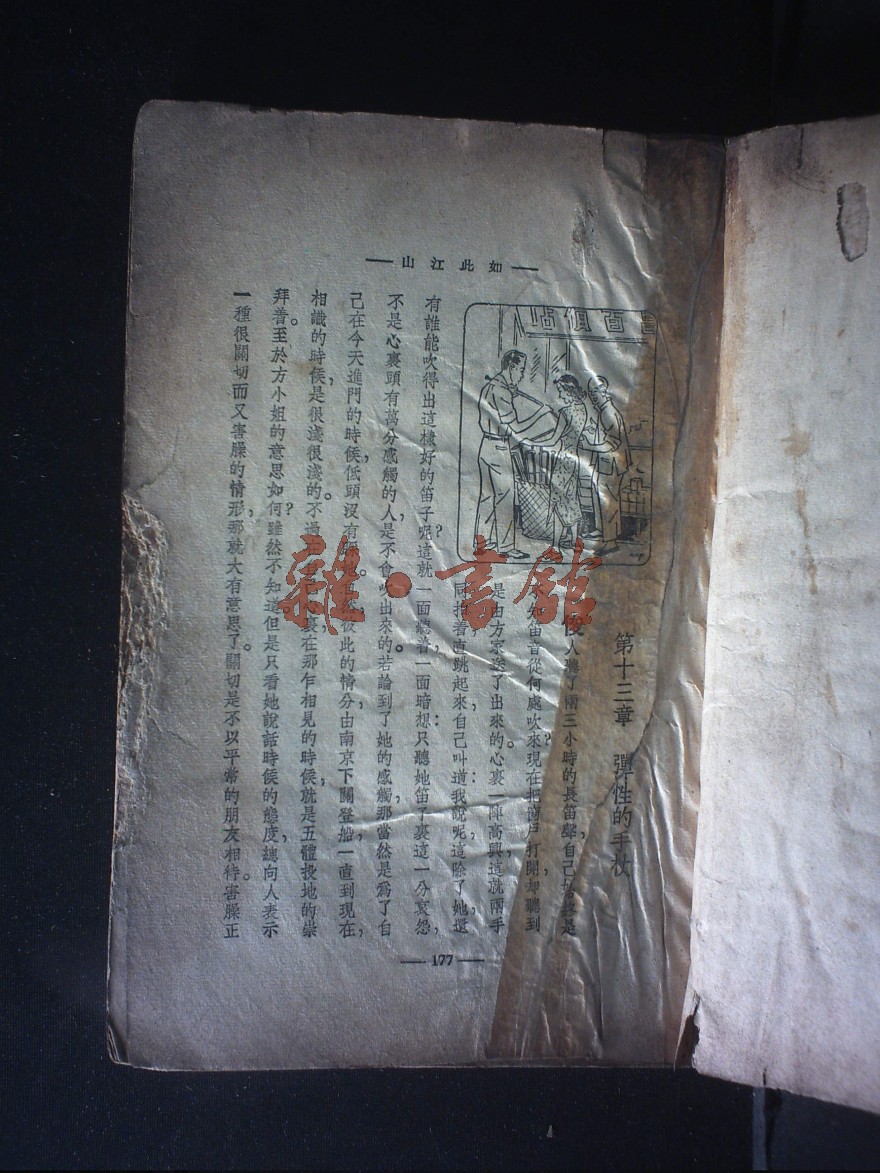 如此江山
第十三章　彈性的手杖
俊人聽了兩三小時的長笛聲，自己始終是
不知笛音從何處吹來？現在把窗戶打開，却聽到
是由方家送了出來的。心裏一陣高興，這就兩手
同拍着，直跳起來，自己叫道：我說呢，這除了她，還
有誰能吹得出這樣好的笛子呢？這就一面聽着，一面暗想：只聽她笛子裏這一分哀怨，
不是心裏頭有萬分感觸的人，是不會吹出來的。若論到了她的感觸，那當然是爲了自
己在今天進門的時候，低頭沒有
彼此的情分，由南京下關登船，一直到現在，
相識的時候，是很淺很淺的。不過
心裏，在那乍相見的時候，就是五體投地的崇
拜。至於方小姐的意思如何？雖然不知道，但是只看她說話時候的態度，總向人表示
一種很關切而又害臊的情形，那就大有意思了。關切是不以平常的朋友相待。害臊正
177
雜·書館